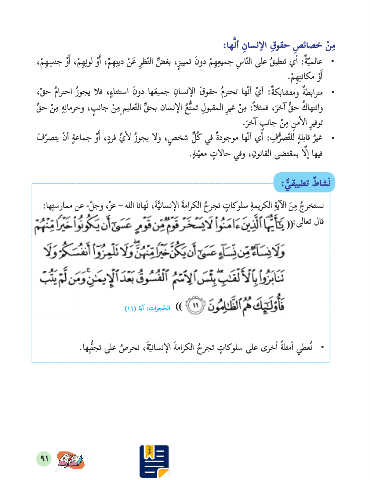 مِنْ خصائصِ حقوقِ الإنسانِ أنَّها:
• عالميَّةٌ: أي تنطبقُ على النَّاسِ جميعِهِمْ دونَ تمييزٍ، بغضِّ النَّظرِ عَنْ دينِهِمْ، أَوْ لونِهِمْ، أَوْ جنسِهِمْ، أَوْ مكانتِهِمْ.
• مترابطةٌ ومتشابكةٌ: أيْ أنَّها تحترمُ حقوقَ الإنسانِ جميعَها دونَ استثناءٍ، فلا يجوزُ احترامُ حقٍّ، وانتهاكُ حقٍّ آخرَ، فمثلاً: مِنْ غيرِ المقبولِ تمتُّعُ الإنسانِ بحقِّ التَّعليمِ مِنْ جانبٍ، وحرمانِهِ مِنْ حقِّ توفيرِ الأمنِ مِنْ جانبٍ آخرَ.
• غيرُ قابلةٍ للتَّصرُّفِ: أي أنَّها موجودةٌ في كلِّ شخصٍ، ولا يجوزُ لأيِّ فردٍ، أَوْ جماعةٍ أنْ يتصرَّفَ فيها إلَّا بمقتضى القانونِ، وفي حالاتٍ معيّنةٍ.
نَشاطٌ تطبيقيٌّ:
نستنتجُ مِنَ الآيةِ الكريمةِ سلوكاتٍ تجرحُ الكرامةَ الإنسانيَّةَ، نَهانا الله – عزَّ وجلَّ- عن ممارستِها:
قال تعالى:(( يَٰٓأَيُّهَا ٱلَّذِينَ ءَامَنُوا۟ لَا يَسْخَرْ قَوْمٌ مِّن قَوْمٍ عَسَىٰٓ أَن يَكُونُوا۟ خَيْرًا مِّنْهُمْ
وَلَا نِسَآءٌ مِّن نِّسَآءٍ عَسَىٰٓ أَن يَكُنَّ خَيْرًا مِّنْهُنَّ وَلَا تَلْمِزُوٓا۟ أَنفُسَكُمْ وَلَا
تَنَابَزُوا۟ بِٱلْأَلْقَٰبِ بِئْسَ ٱلِٱسْمُ ٱلْفُسُوقُ بَعْدَ ٱلْإِيمَٰنِ وَمَن لَّمْ يَتُبْ
فَأُو۟لَٰٓئِكَ هُمُ ٱلظَّٰلِمُونَ ١١ )) الحجرات، آية (١١)
• نُعطي أمثلةً أخرى على سلوكاتٍ تجرحُ الكرامةَ الإنسانيَّةَ، نحرصُ على تجنُّبِها.
٩١